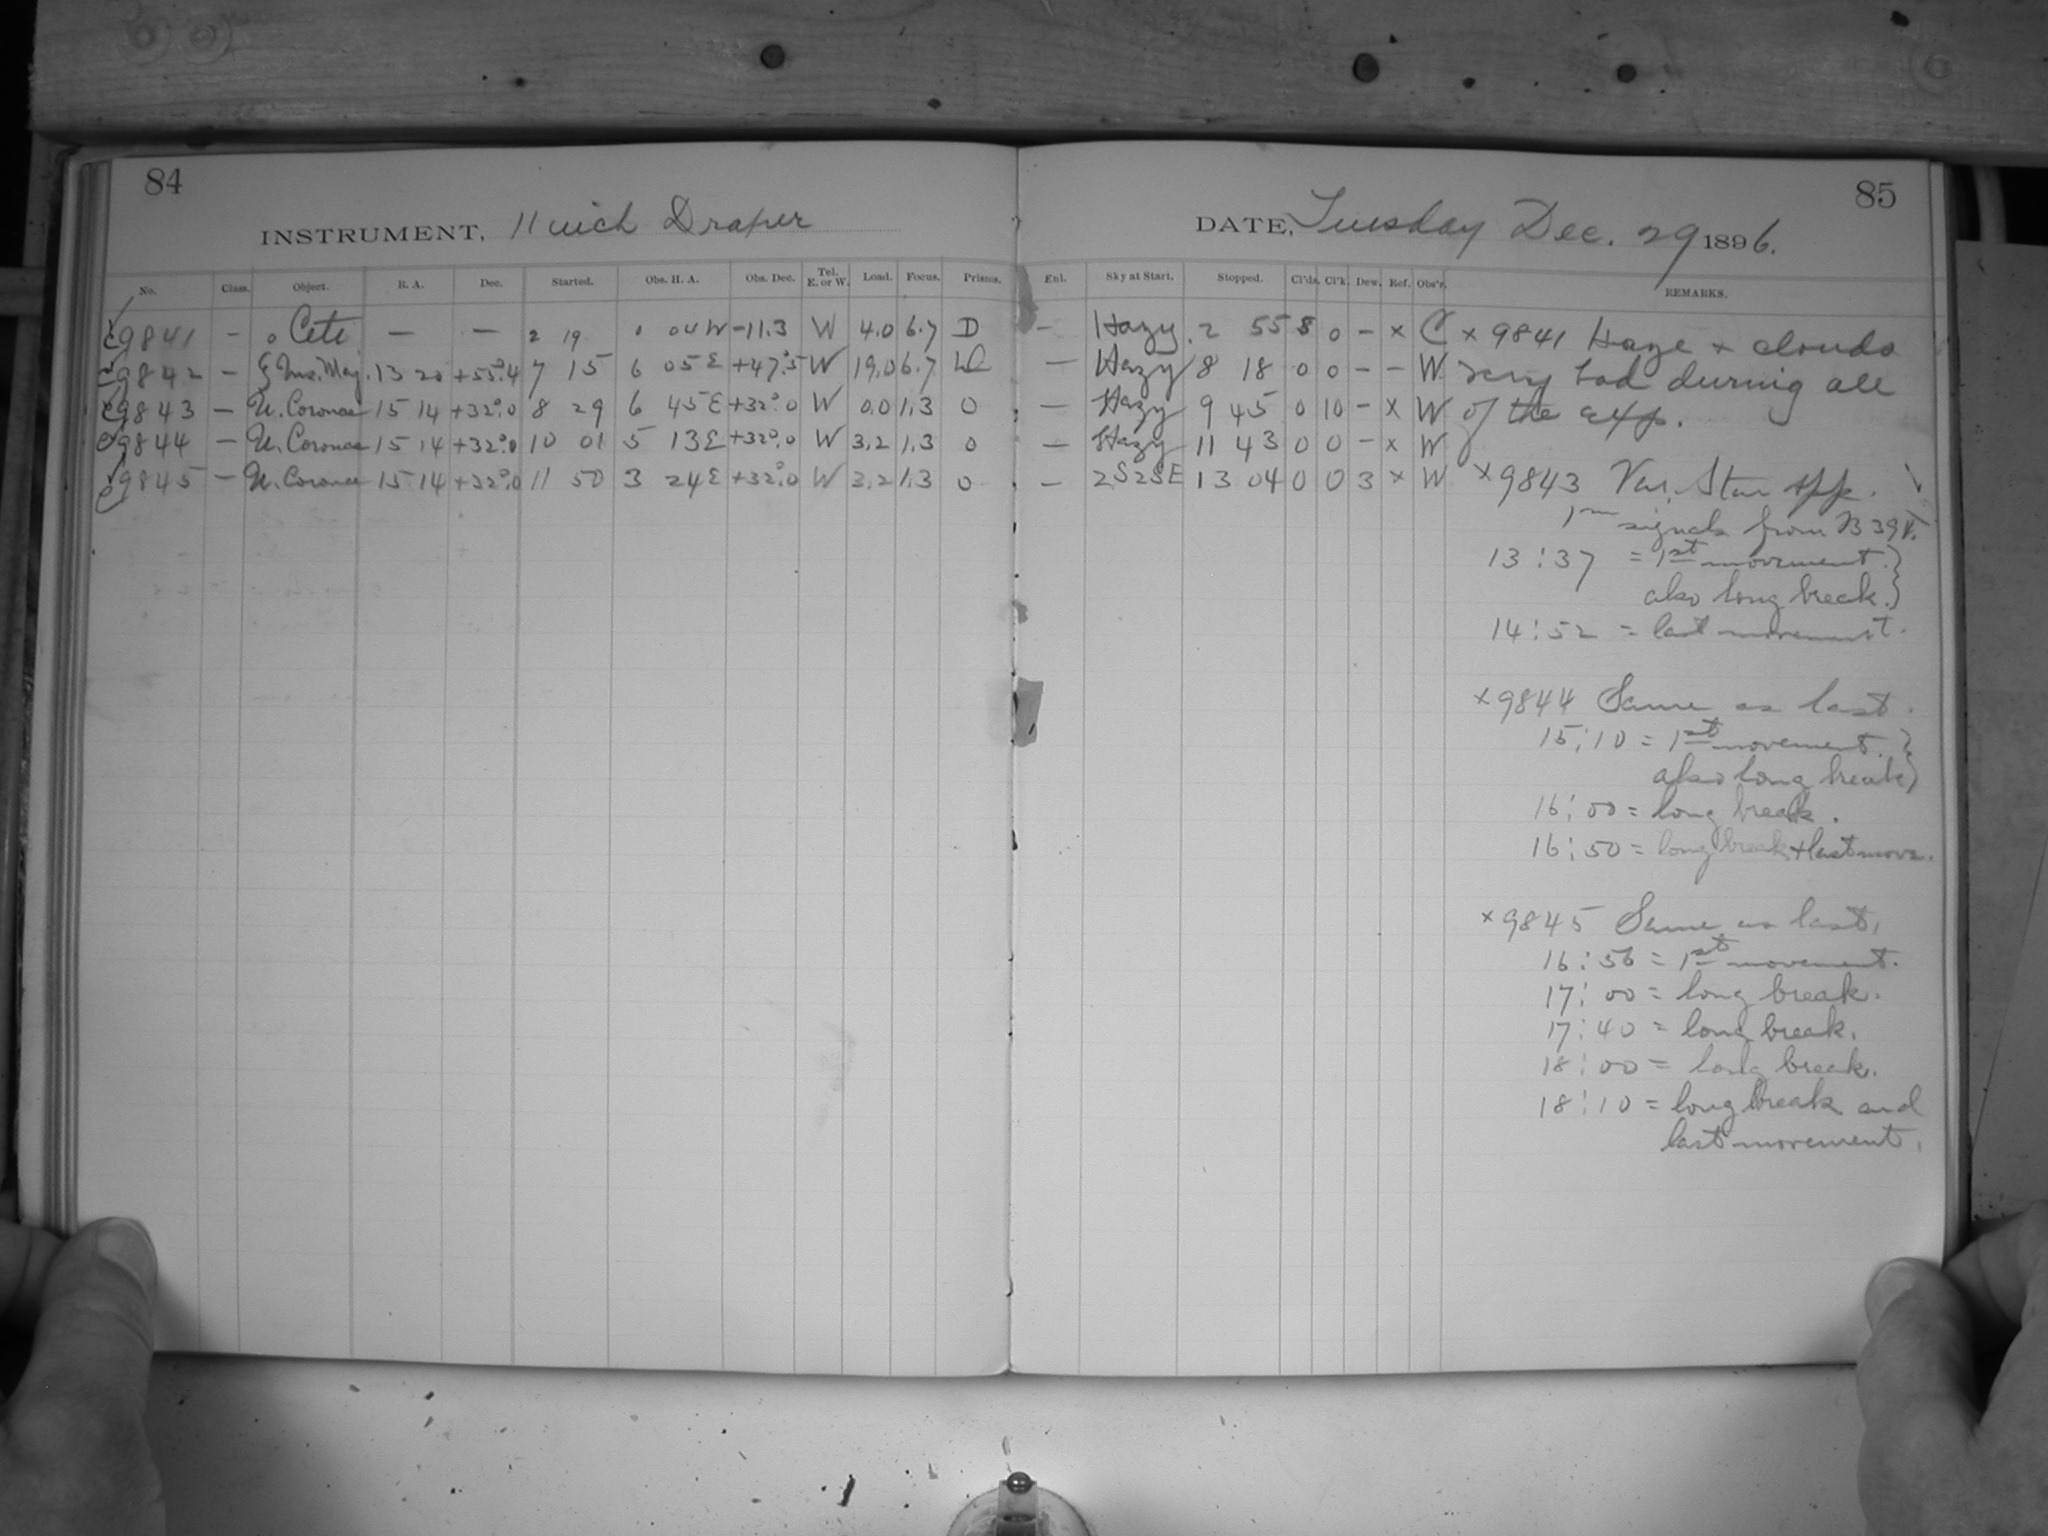 84
INSTRUMENT, 11 inch Draper
No. Class. Object. R. A. Dec. Started. Obs. H. A. Obs. Dec. Tel. E. or W. Load. Focus. Prisms.
C9841 - o Ceti — — 2 19 0 04W -11.3 W 4.0 6.7 D
C9842 - ζ Urs. Maj. 13 20 +55°.4 7 15 6 05E +47°.5 W 19.0 6.7
C9843 - U. Coronae 15 14 +32°.0 8 29 6 45E +32°.0 W 0.0 1.3 0
C9844 - U. Coronae 15 14 +32°.0 10 01 5 13E +32°.0 W 3.2 1.3 0
C9845 - U. Coronae 15 14 +32°.0 11 50 3 24E +32°.0 W 3.2 1.3 0
85
DATE, Tuesday Dec. 29 1896.
Enl. Sky at Start. Stopped. Cl'ds. Cl'k. Dew. Ref. Obs'r. REMARKS.
— Hazy. 2 55 8 0 - x C
— Hazy 8 18 0 0 - - W
— Hazy 9 45 0 10 - x W
— Hazy 11 43 0 0 - x W
— 2S2SE 13 04 0 0 3 x W
x 9841 Haze + clouds
very bad during all
of the exp.
x9843 Var. Star app.
1m signals from B 39
13:37 = 1st movement. }
also long break. }
14:52 = last movement.
x9844 Same as last.
15:10 = 1st movement. }
also long break }
16:00 = long break.
16:50 = long break + last move.
x9845 Same as last.
16:56 = 1st movement.
17:00 = long break.
17:40 = long break.
18:00 = long break.
18:10 = long break and
last movement.